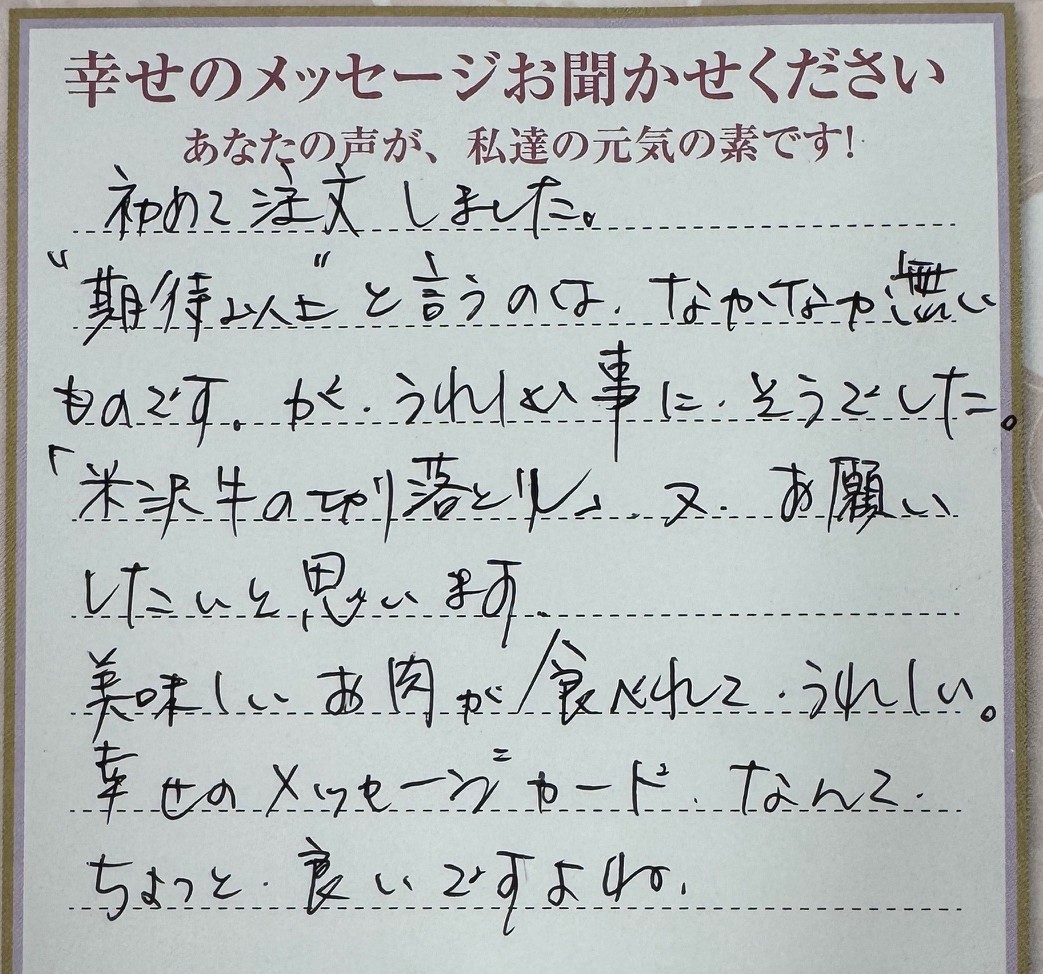 幸せのメッセージお聞かせください
あなたの声が、私達の元気の素です!
初めて注文しました。
"期待以上"と言うのは、なかなか無い
ものです。が、うれしい事に、そうでした。
「米沢牛の切り落とし」、又、お願い
したいと思います。
美味しいお肉が食べれて、うれしい。
幸せのメッセージカード、なんて、
ちょっと、良いですよね。